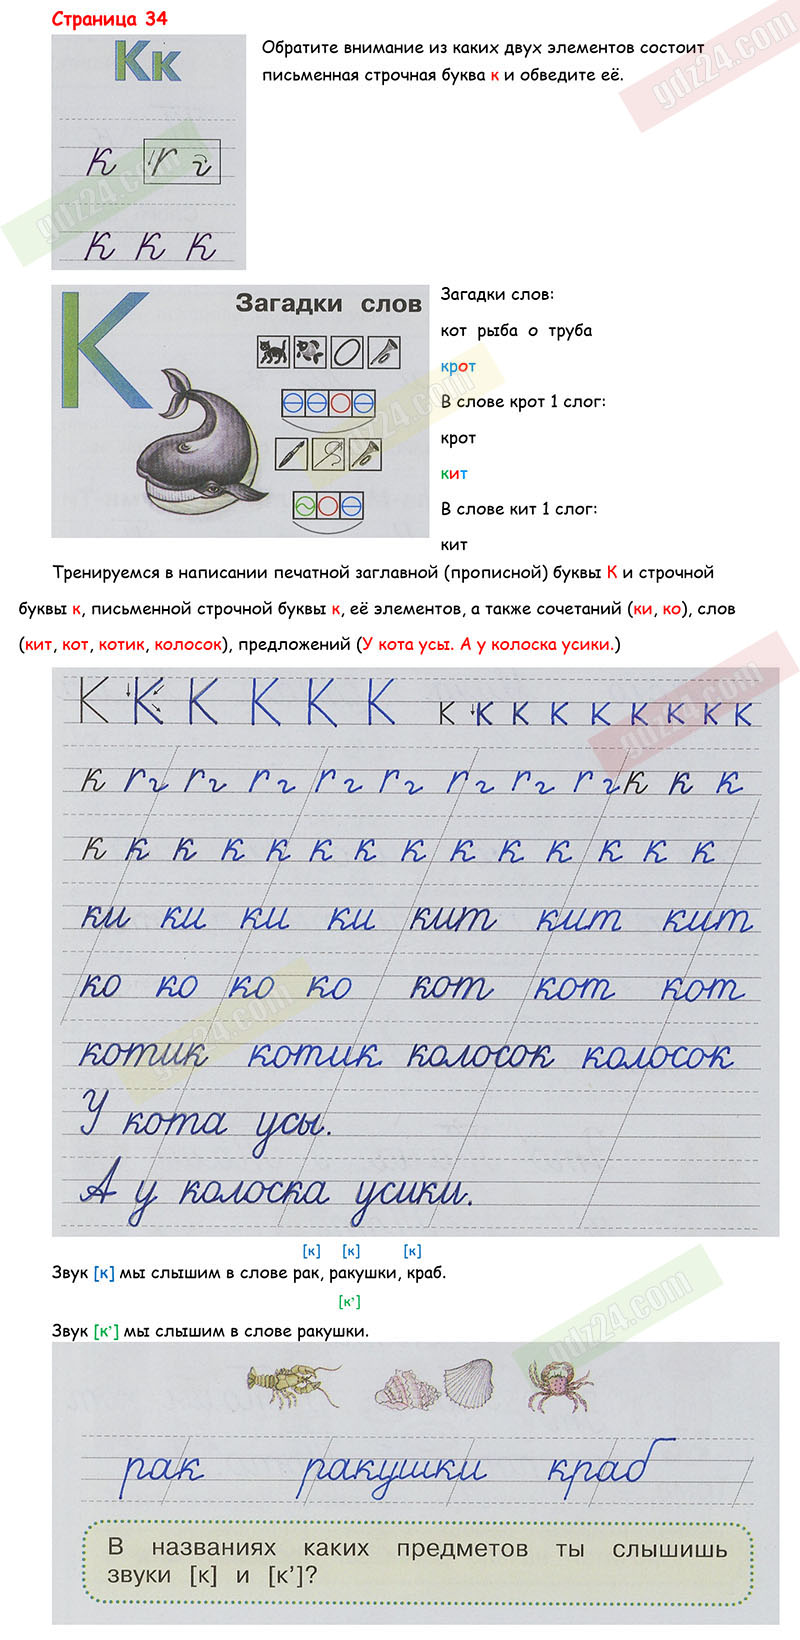 Страница 34
Кк
Обратите внимание из каких двух элементов состоит
письменная строчная буква к и обведите её.
к
к к к
К
Загадки слов
Загадки слов:
кот рыба о труба
крот
В слове крот 1 слог:
крот
кит
В слове кит 1 слог:
кит
Тренируемся в написании печатной заглавной (прописной) буквы К и строчной
буквы к, письменной строчной буквы к, её элементов, а также сочетаний (ки, ко), слов
(кит, кот, котик, колосок), предложений (У кота усы. А у колоска усики.)
К К К К К К к к к к к к к к к
к к к к
к к к к к к к к к к к к к к
ки ки ки ки кит кит кит
ко ко ко ко кот кот кот
котик котик колосок колосок
У кота усы.
А у колоска усики.
[к] [к] [к]
Звук [к] мы слышим в слове рак, ракушки, краб.
[к’]
Звук [к’] мы слышим в слове ракушки.
рак ракушки краб
В названиях каких предметов ты слышишь
звуки [к] и [к’]?
gdz24.com
gdz24.com
gdz24.com
gdz24.com
gdz24.com
gdz24.com